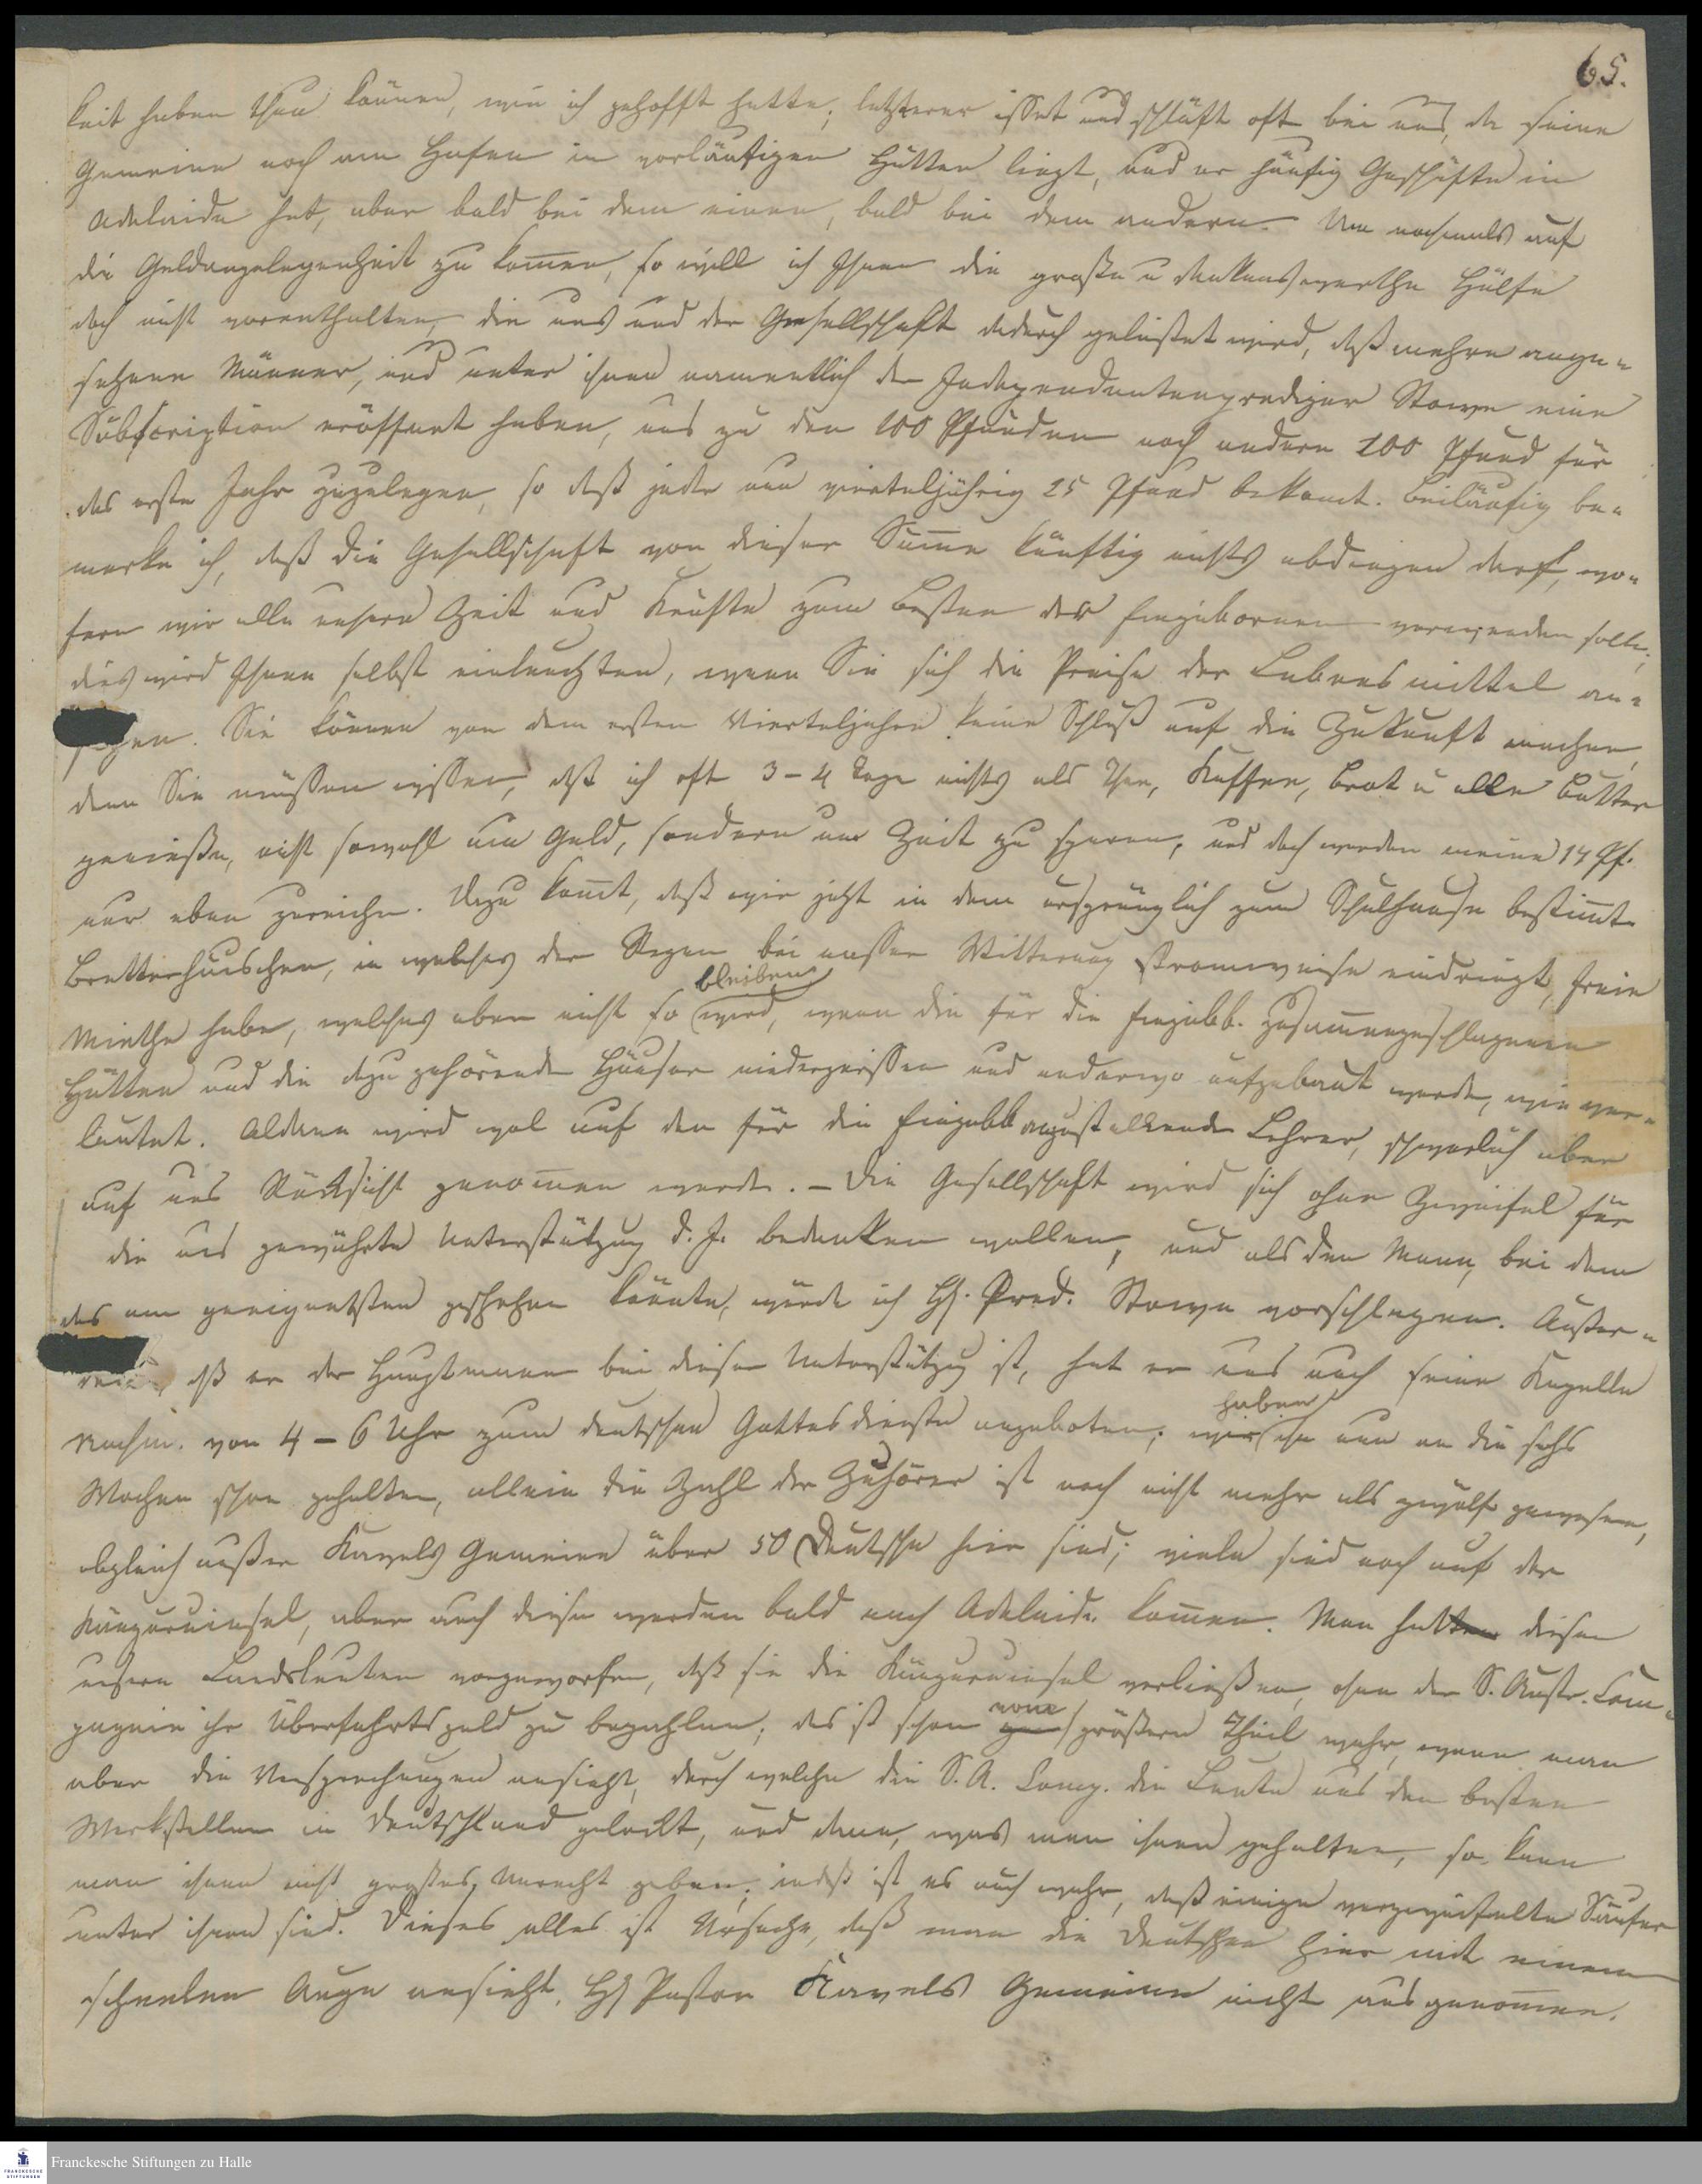 65.
keit haben thun können, wie ich gehofft hatte; letzterer isset und schläft oft bei uns, da seine
Gemeine noch am Hafen in vorläufigen Hütten liegt, und er häufig Geschäfte in
Adelaide hat, aber bald bei dem einen, bald bei dem andern. Um nochmals auf
die Geldangelegenheit zu kom̄en, so will ich Ihnen die große u dankenswerthe Hülfe
doch nicht vorenthalten, die uns und der Gesellschaft dadurch geleistet wird, daß mehre ange-
sehene Männer, und unter ihnen namentlich der Independentenprediger Stowe eine
Subscription eröffnet haben, uns zu den 100 Pfunden noch andere 100 Pfund für
das erste Jahr zuzulegen, so daß jeder nun vierteljährig 25 Pfund bekom̄t. Beiläufig be-
merke ich, daß die Gesellschaft von dieser Sum̄e künftig nichts abdingen darf, wo-
fern wir alle unsere Zeit und Kräfte zum Besten der Eingebornen verwenden sollen;
dies wird Ihnen selbst einleuchten, wenn Sie sich die Preise der Lebensmittel an-
sehen. Sie können von dem ersten Vierteljahre keine Schluß auf die Zukunft machen,
denn Sie müssen wissen, daß ich oft 3-4 Tage nichts als Thee, Kaffee, Brot u alle Butter
genieße, nicht sowohl um Geld, sondern um Zeit zu sparen, und doch werden meine 14 Pf.
nur eben zureichen. Dazu kom̄t, daß wir jetzt in dem ursprünglich zum Schulhause bestim̄te
Bretterhäuschen, in welches der Regen bei nasser Witterung stromweise eindringt, freie
Miethe habe, welches aber nicht so bleiben wird, wenn die für die Eingebb. zusam̄engeschlagenen
Hütten und die dazu gehörende Häuser niedergerissen und anderswo aufgebaut werde, wie ver-
lautet. Alsdann wird wol auf den für die Eingebb anzustellende Lehrer, schwerlich aber
auf uns Rücksicht genom̄en werde. – Die Gesellschaft wird sich ohne Zweifel für
die uns gewährte Unterstützung d. J. bedanken wollen, und als den Mann, bei dem
das am geeignetsten geschehen könnte, würde ich H. Pred. Stowe vorschlagen. Außer-
dem, daß er der Hauptmann bei dieser Unterstützung ist, hat er uns auch seine Kapelle
Nachm. von 4-6 Uhr zum deutschen Gottesdienste angeboten; wir haben ihn nun an die sechs
Wochen schon gehalten, allein die Zahl der Zuhörer ist noch nicht mehr als zwölf gewesen,
obgleich außer Kavels Gemeine über 50 Deutsche hier sind; viele sind noch auf der
Känguruinsel, aber auch diese werden bald nach Adelaide kom̄en. Man hat diesen
unsern Landsleuten vorgeworfen, daß sie die Känguruinsel verließen, ohne der S. Austr. Com-
pagnie ihr Überfahrtsgeld zu bezahlen; das ist schon vom größern Theil wahr, wenn man
aber die Versprechungen ansieht, durch welche die S. A. Comp. die Leute aus den besten
Werkstellen in Deutschland gelockt, und dann, was man ihnen gehalten, so kann
man ihnen nicht großes Unrecht geben; indeß ist es auch wahr, daß einige verzweifelte Säufer
unter ihnen sind. Dieses alles ist Ursache, daß man die Deutschen hier mit einem
scheelen Auge ansieht, H Pastor Kavels Gemeine nicht ausgenom̄en.
FRANCKESCHE STIFTUNGEN
Franckesche Stiftungen zu Halle